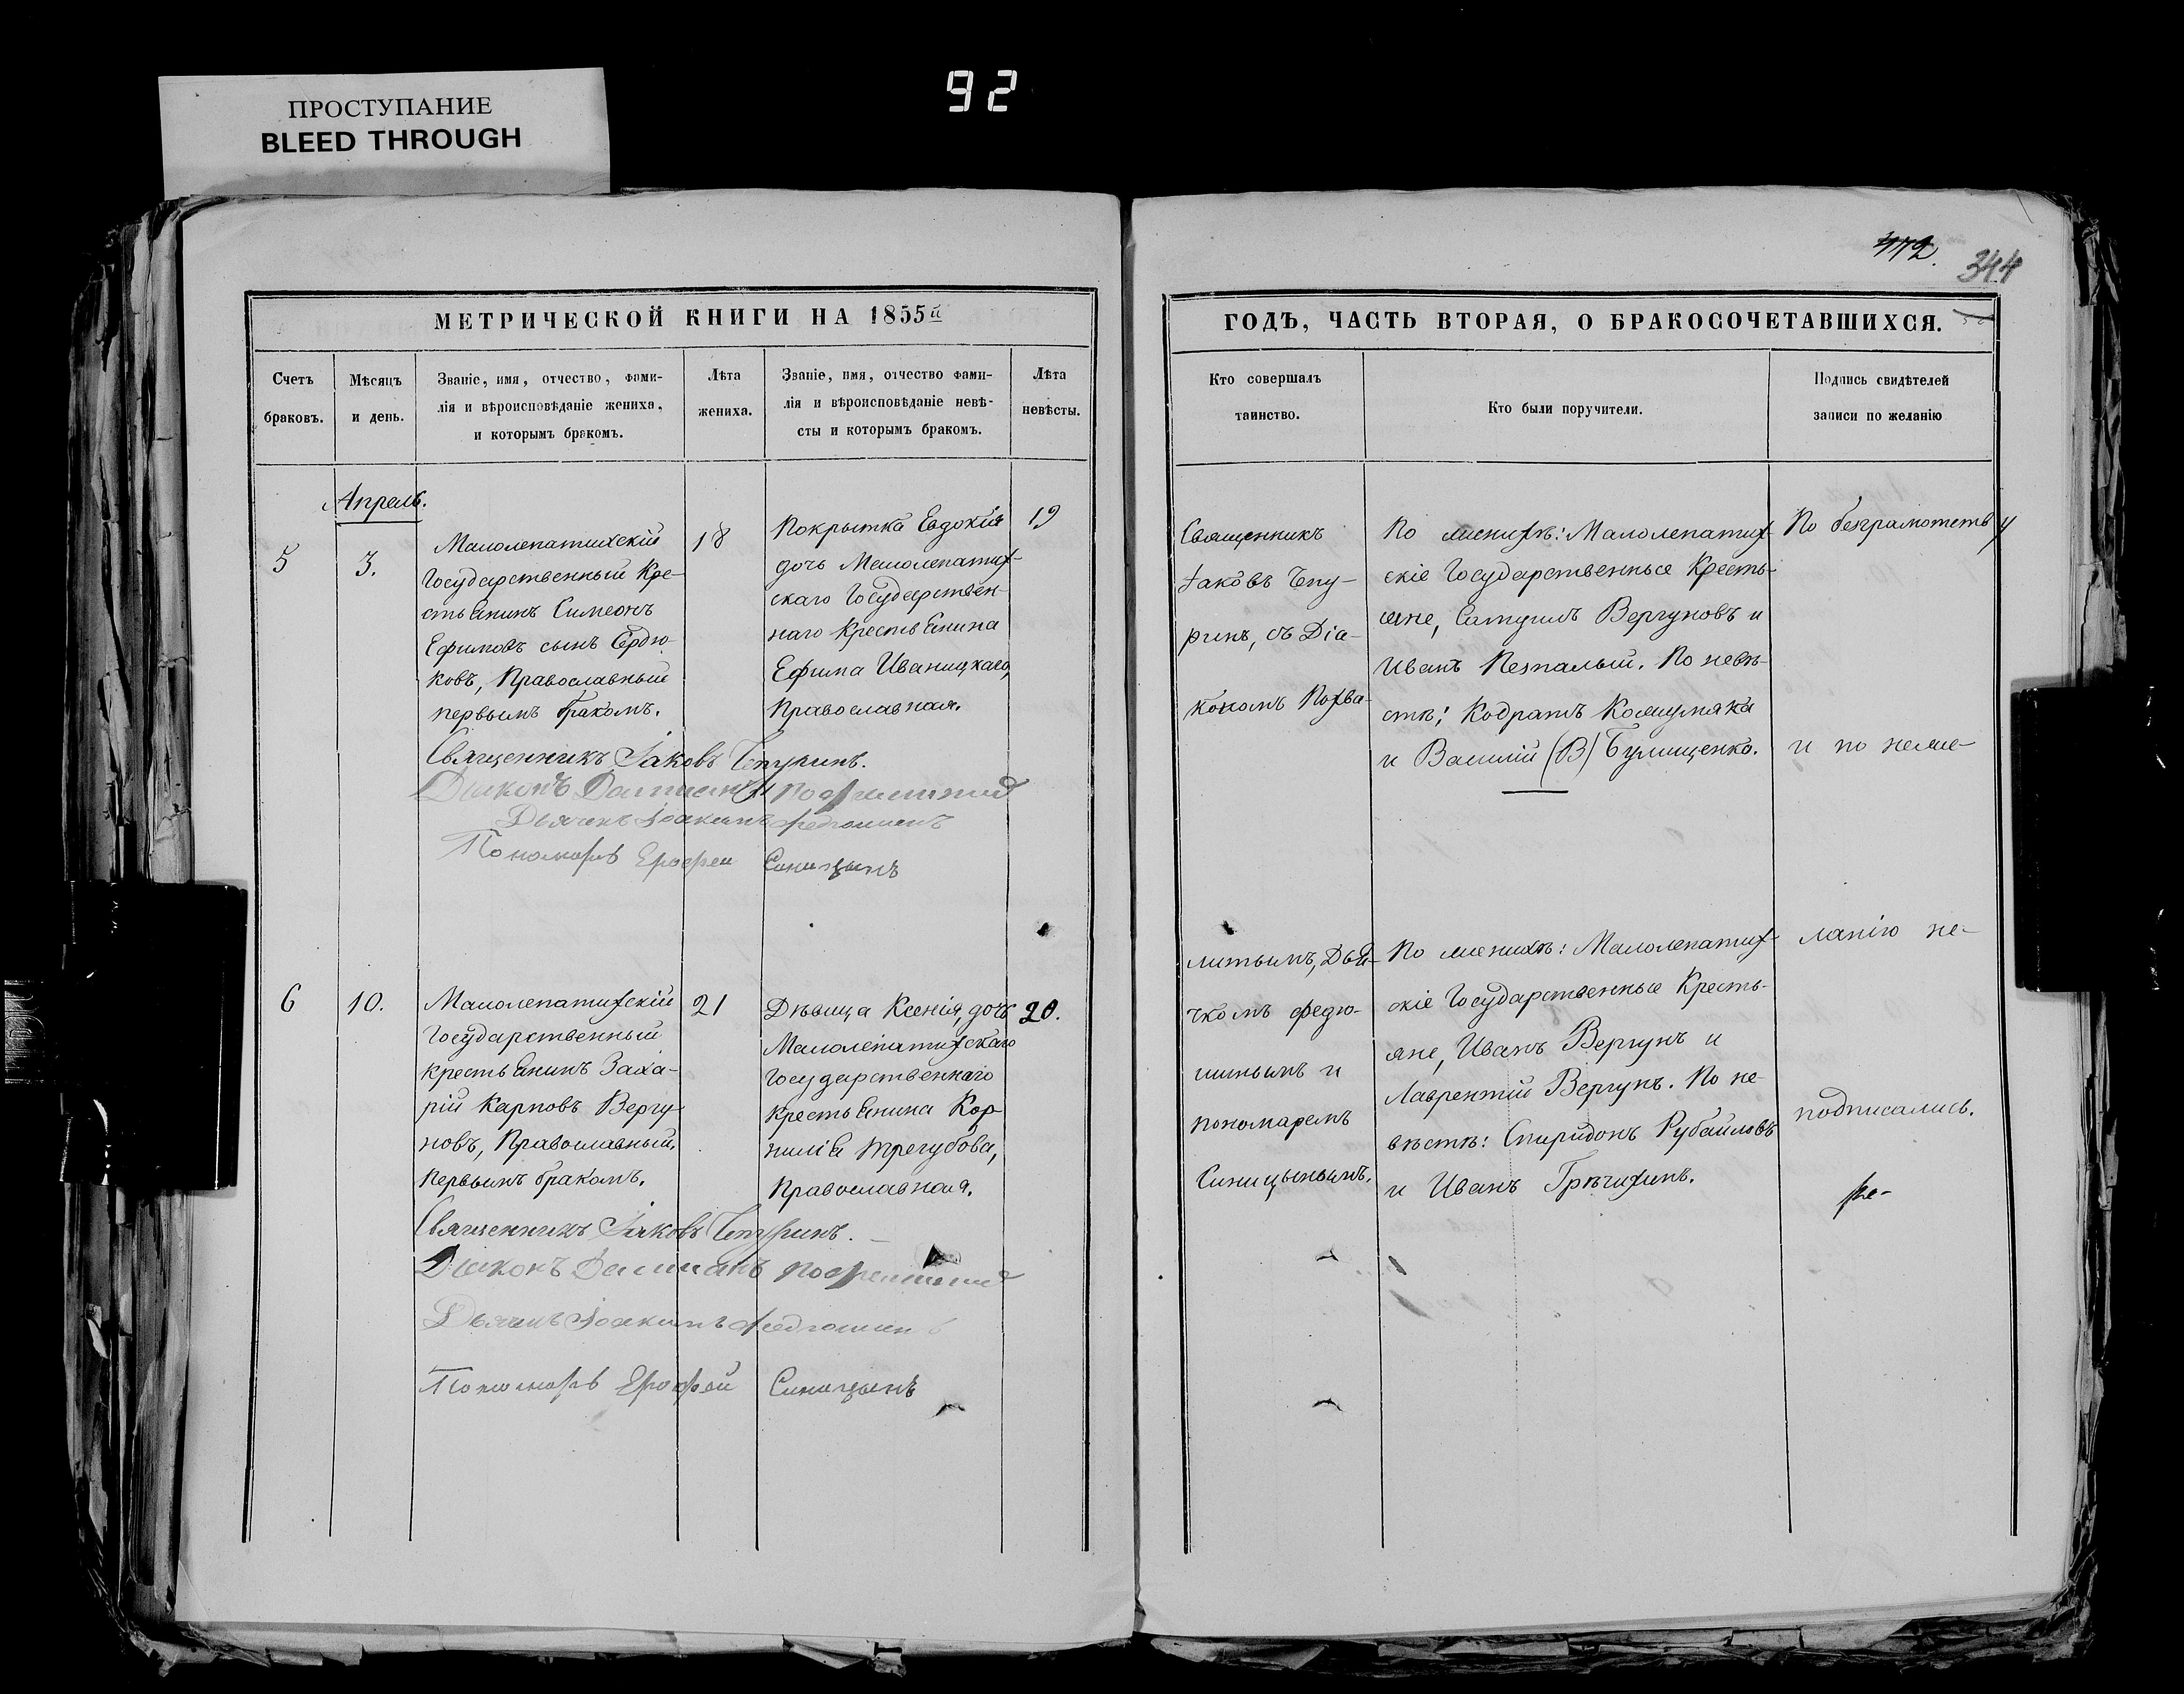 ПРОСТУПАНИЕ
BLEED THROUGH
92
МЕТРИЧЕСКОЙ КНИГИ НА 1855й
Счетъ браковъ.
Мѣсяцъ и день.
Званіе, имя, отчество, фами-
лія и вѣроисповѣданіе жениха,
и которымъ бракомъ.
Лѣта жениха.
Званіе, имя, отчество фами-
лія и вѣроисповѣданіе невѣ-
сты и которымъ бракомъ.
Лѣта невѣсты.
Апрель.
5
3.
Малолепатихскій
Государственный Кре-
стьянинъ Симеонъ
Ефимовъ сынъ Сердю-
ковъ, Православный
первымъ бракомъ.
18
Покрытка Евдокія
дочь Малолепатих-
скаго Государствен-
наго Крестьянина
Ефима Иваницкаго,
Православная.
19
Священникъ Іаковъ Чепуринъ.
Діаконъ
Дьячекъ Іоакимъ Федюшинъ
Пономарь Ерофеи Синицынъ
6
10.
Малолепатихскій
Государственный
крестьянинъ Заха-
рій Карповъ Вергу-
новъ, Православный,
первымъ бракомъ.
21
Дѣвица Ксенія, дочь
Малолепатихскаго
Государственнаго
крестьянина Кор-
нилія Трегубова,
Православная.
20.
Священникъ Іаковъ Чепуринъ.
Діаконъ
Дьячекъ Іоакимъ Федюшинъ
Пономарь Ерофей Синицынъ
412.
344
ГОДѢ, ЧАСТЬ ВТОРАЯ, О БРАКОСОЧЕТАВШИХСЯ.
Кто совершалъ
таинство.
Кто были поручители.
Подпись свидѣтелей
записи по желанію
Священникъ
Іаковъ Чепу-
ринъ, съ Діа-
кономъ Похва-
литымъ, Дья-
чкомъ Федю-
шинымъ и
пономаремъ
Синицынымъ.
По женихѣ: Малолепатих-
скіе Государственные Кресть-
яне, Самуилъ Вергуновъ и
Иванъ Безпалый. По невѣ-
стѣ: Кодратъ
и Василій (В) Булищенко.
По женихѣ: Малолепатих-
скіе Государственные Кресть-
яне, Иванъ Вергунъ и
Лаврентій Вергунъ. По не-
вѣстѣ: Спиридонъ Рубайловъ
и Иванъ Грѣчихинъ.
По безграмотству
и по неже-
ланію не-
подписались.